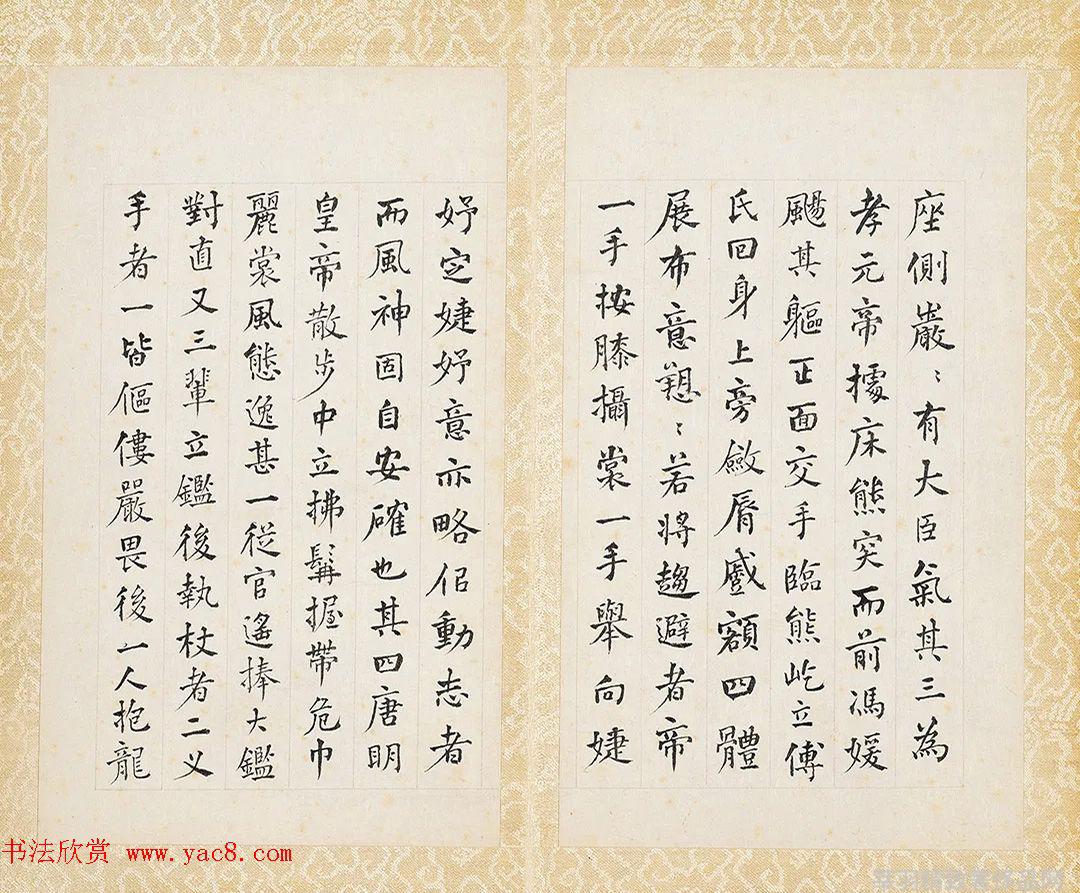 座側巖〻有大臣氣其三為
孝元帝據床熊突而前馮媛
颺其軀正面交手臨熊屹立傅
氏回身上旁斂脣蹙額四體
展布意〻若將趨避者帝
一手按膝攝裳一手舉向婕
妤定婕妤意亦略佀動志者
而風神固自安確也其四唐明
皇帝散步中立拂髯握帶危巾
麗裳風態逸甚一從官遙捧大鑑
對直又三輩立鑑後執杖者二叉
手者一皆傴僂嚴畏後一人抱龍
书法欣赏 www.yac8.com